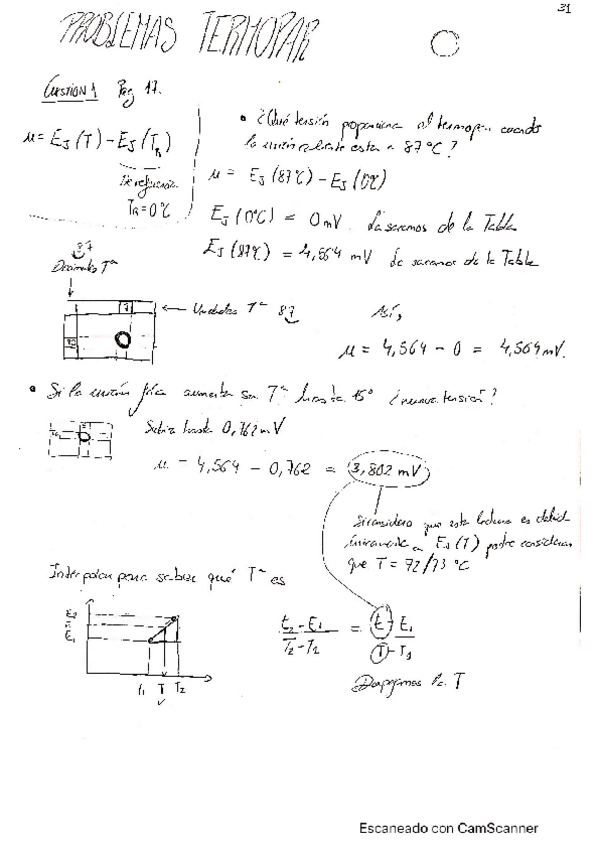 31
PROBLEMAS TERMOPAR
CUESTION 1 Pag 17.
μ = EJ(T) - EJ(TR)
de referencia
TR = 0ºC
• ¿Qué tensión proporciona el termopar cuando
la unión caliente esta a 87ºC?
μ = EJ(87ºC) - EJ(0ºC)
EJ(0ºC) = 0mV. La sacamos de la Tabla
EJ(87ºC) = 4,564 mV La sacamos de la Tabla
87
Decenas Tª
Unidades Tª 87
Así,
μ = 4,564 - 0 = 4,564 mV.
• Si la unión fría aumenta su Tª hasta 15º ¿nueva tensión?
Subiría hasta 0,762 mV
μ = 4,564 - 0,762 = 3,802 mV
Si considero que esta lectura es debida
únicamente a EJ(T) podré considerar
que T = 72/73ºC
Interpolar para saber qué Tª es
E2
E
E1
T1 T T2
E2 - E1 = E - E1
T2 - T1 T - T1
Despejamos la T
Escaneado con CamScanner